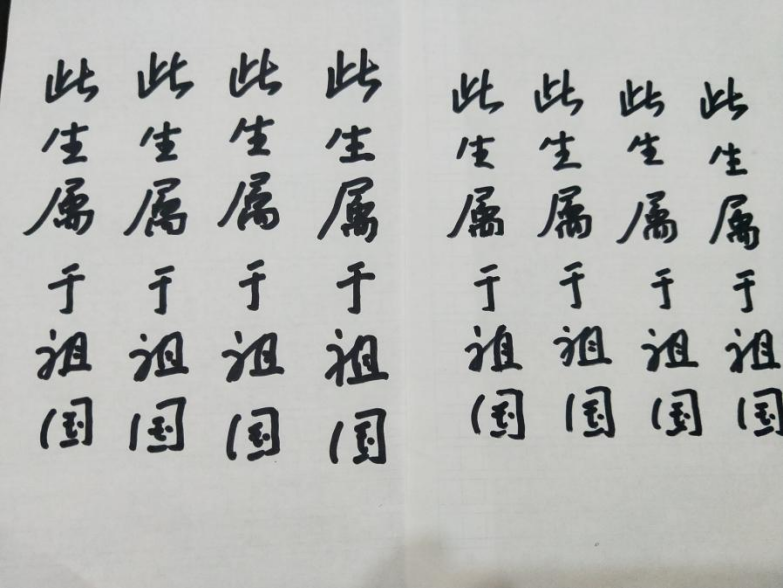 此生属于祖国
此生属于祖国
此生属于祖国
此生属于祖国
此生属于祖国
此生属于祖国
此生属于祖国
此生属于祖国